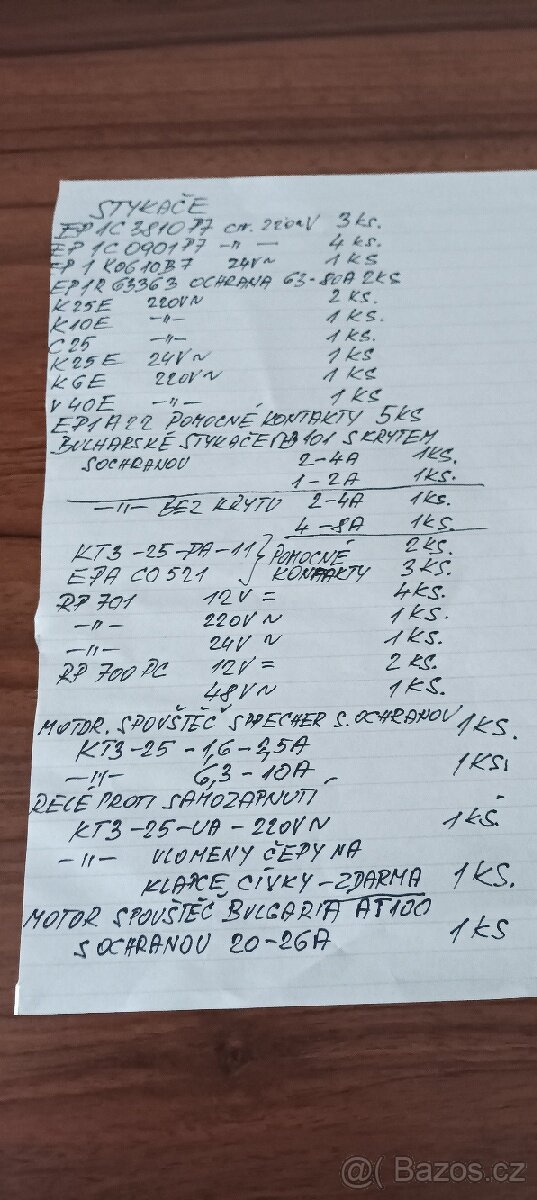 STYKAČE
EP1C3810P7 CÍV. 220V 3KS.
EP1C0901P7 -"- — 4KS.
EP1K0610B7 24V~ 1KS
EP1R63363 OCHRANA 63-80A 2KS
K25E 220V~ 2KS.
K10E -"- 1KS.
C25 -"- 1KS.
K25E 24V~ 1KS
K6E 220V~ 1KS
V40E -"- 1KS
EP1A22 POMOCNÉ KONTAKTY 5KS
BULHARSKÉ STYKAČE 101 S KRYTEM
SOCHRANOU 2-4A 1KS.
1-2A 1KS.
-"- BEZ KRYTU 2-4A 1KS.
4-8A 1KS.
KT3-25-PA-11 } POMOCNÉ 2KS.
EPA CO521 KONTAKTY 3KS.
RP 701 12V= 4KS.
-"- 220V~ 1KS.
-"- 24V~ 1KS.
RP 700 PC 12V= 2KS.
48V~ 1KS.
MOTOR. SPOUŠTĚČ SPRECHER S. OCHRANOU 1KS.
KT3-25-1,6-2,5A
-"- 6,3-10A 1KS.
RELÉ PROTI SAMOZAPNUTÍ
KT3-25-UA-220V~ 1KS.
-"- VLOMENY ČEPY NA
KLAPCE CÍVKY - ZDARMA 1KS.
MOTOR SPOUŠTĚČ BULGARIA AT100
SOCHRANOU 20-26A 1KS
@ Bazos.cz